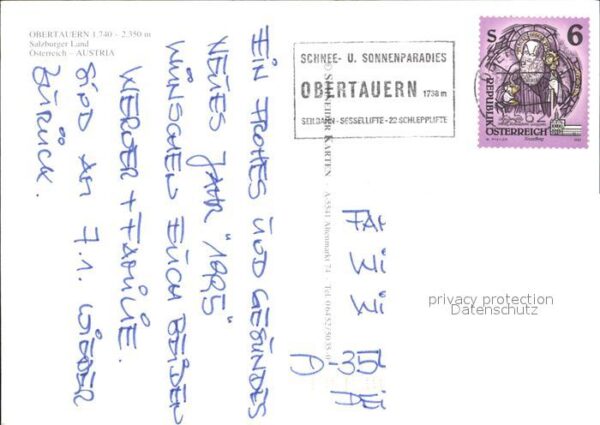 OBERTAUERN 1.740 - 2.350 m
Salzburger Land
Österreich – AUSTRIA
EIN FROHES UND GESUNDES
NEUES JAHR "1995"
WÜNSCHEN EUCH BEIDEN
WERNER + FAMILIE.
SIND AM 7.1. WIEDER
ZURÜCK.
SCHNEE- U. SONNENPARADIES
OBERTAUERN 1738 m
SEILBAHN - SESSELLIFTE - 22 SCHLEPPLIFTE
S 6
REPUBLIK
ÖSTERREICH
© SCHNEIDER KARTEN · A-5541 Altenmarkt 74 · Tel. 06452/5035-0
FAM
Wi
Wi
D -35
privacy protection
Datenschutz